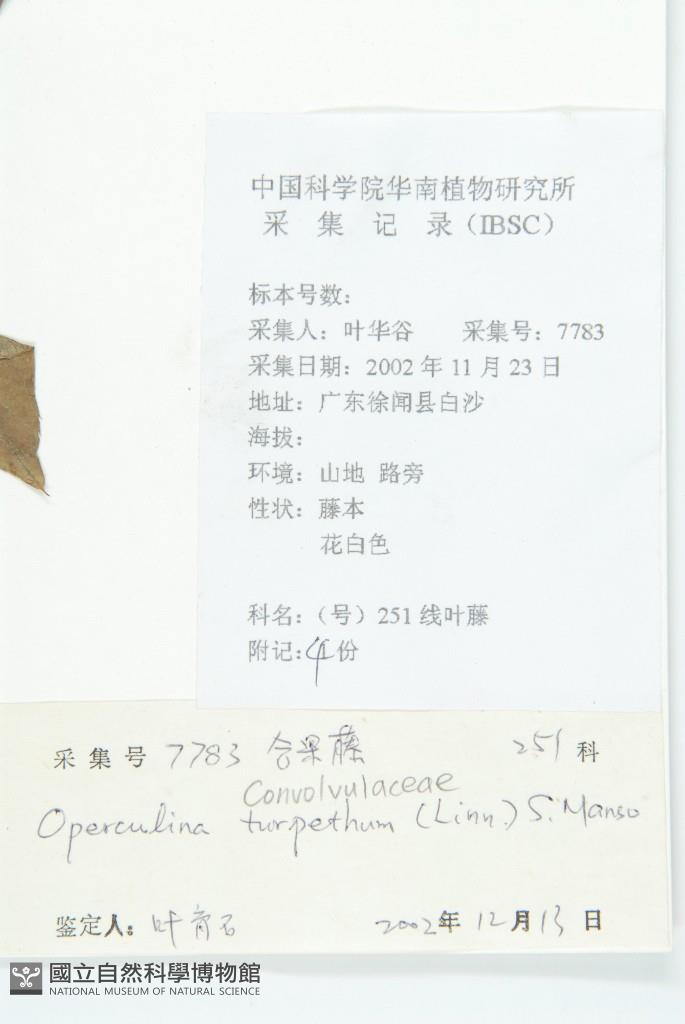 中国科学院华南植物研究所
采 集 记 录（IBSC）
标本号数：
采集人：叶华谷 采集号：7783
采集日期：2002 年 11 月 23 日
地址：广东徐闻县白沙
海拔：
环境：山地 路旁
性状：藤本
花白色
科名：（号）251 线叶藤
附记：4份
采 集 号 7783 合果藤 251 科
Convolvulaceae
Operculina turpethum (Linn.) S. Manso
鉴定人：叶育石 2002年 12月 13 日
國立自然科學博物館
NATIONAL MUSEUM OF NATURAL SCIENCE